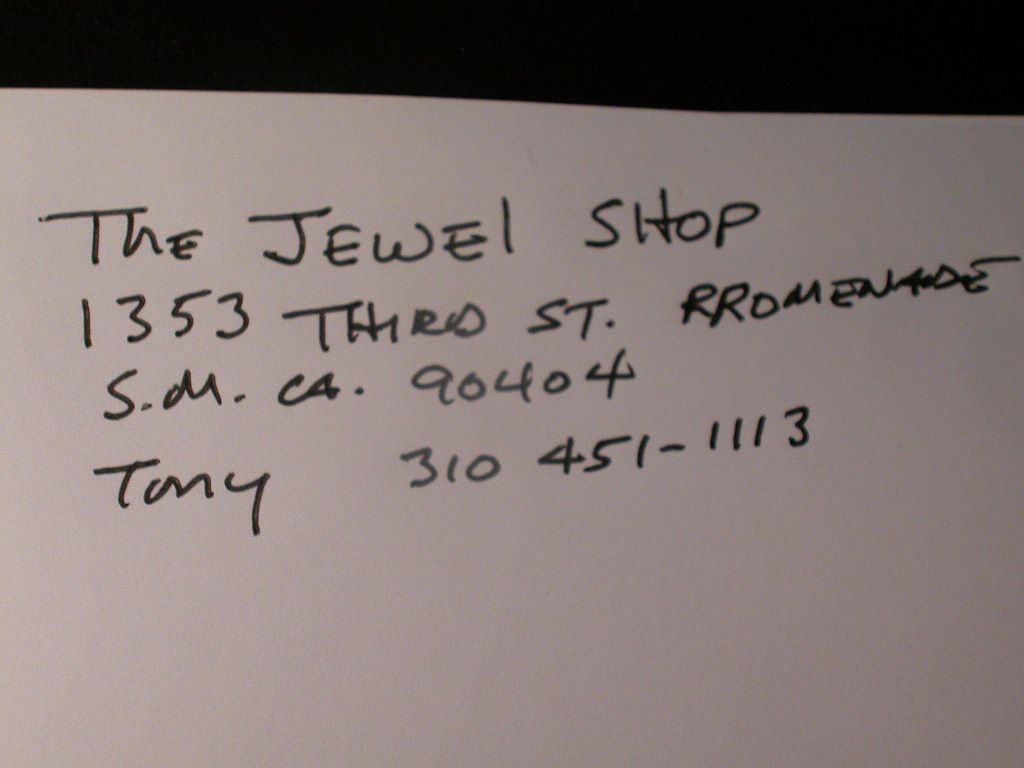 The JEWEl SHOP
1353 THIRD ST. PROMENADE
S.M. CA. 90404
Tony 310 451-1113